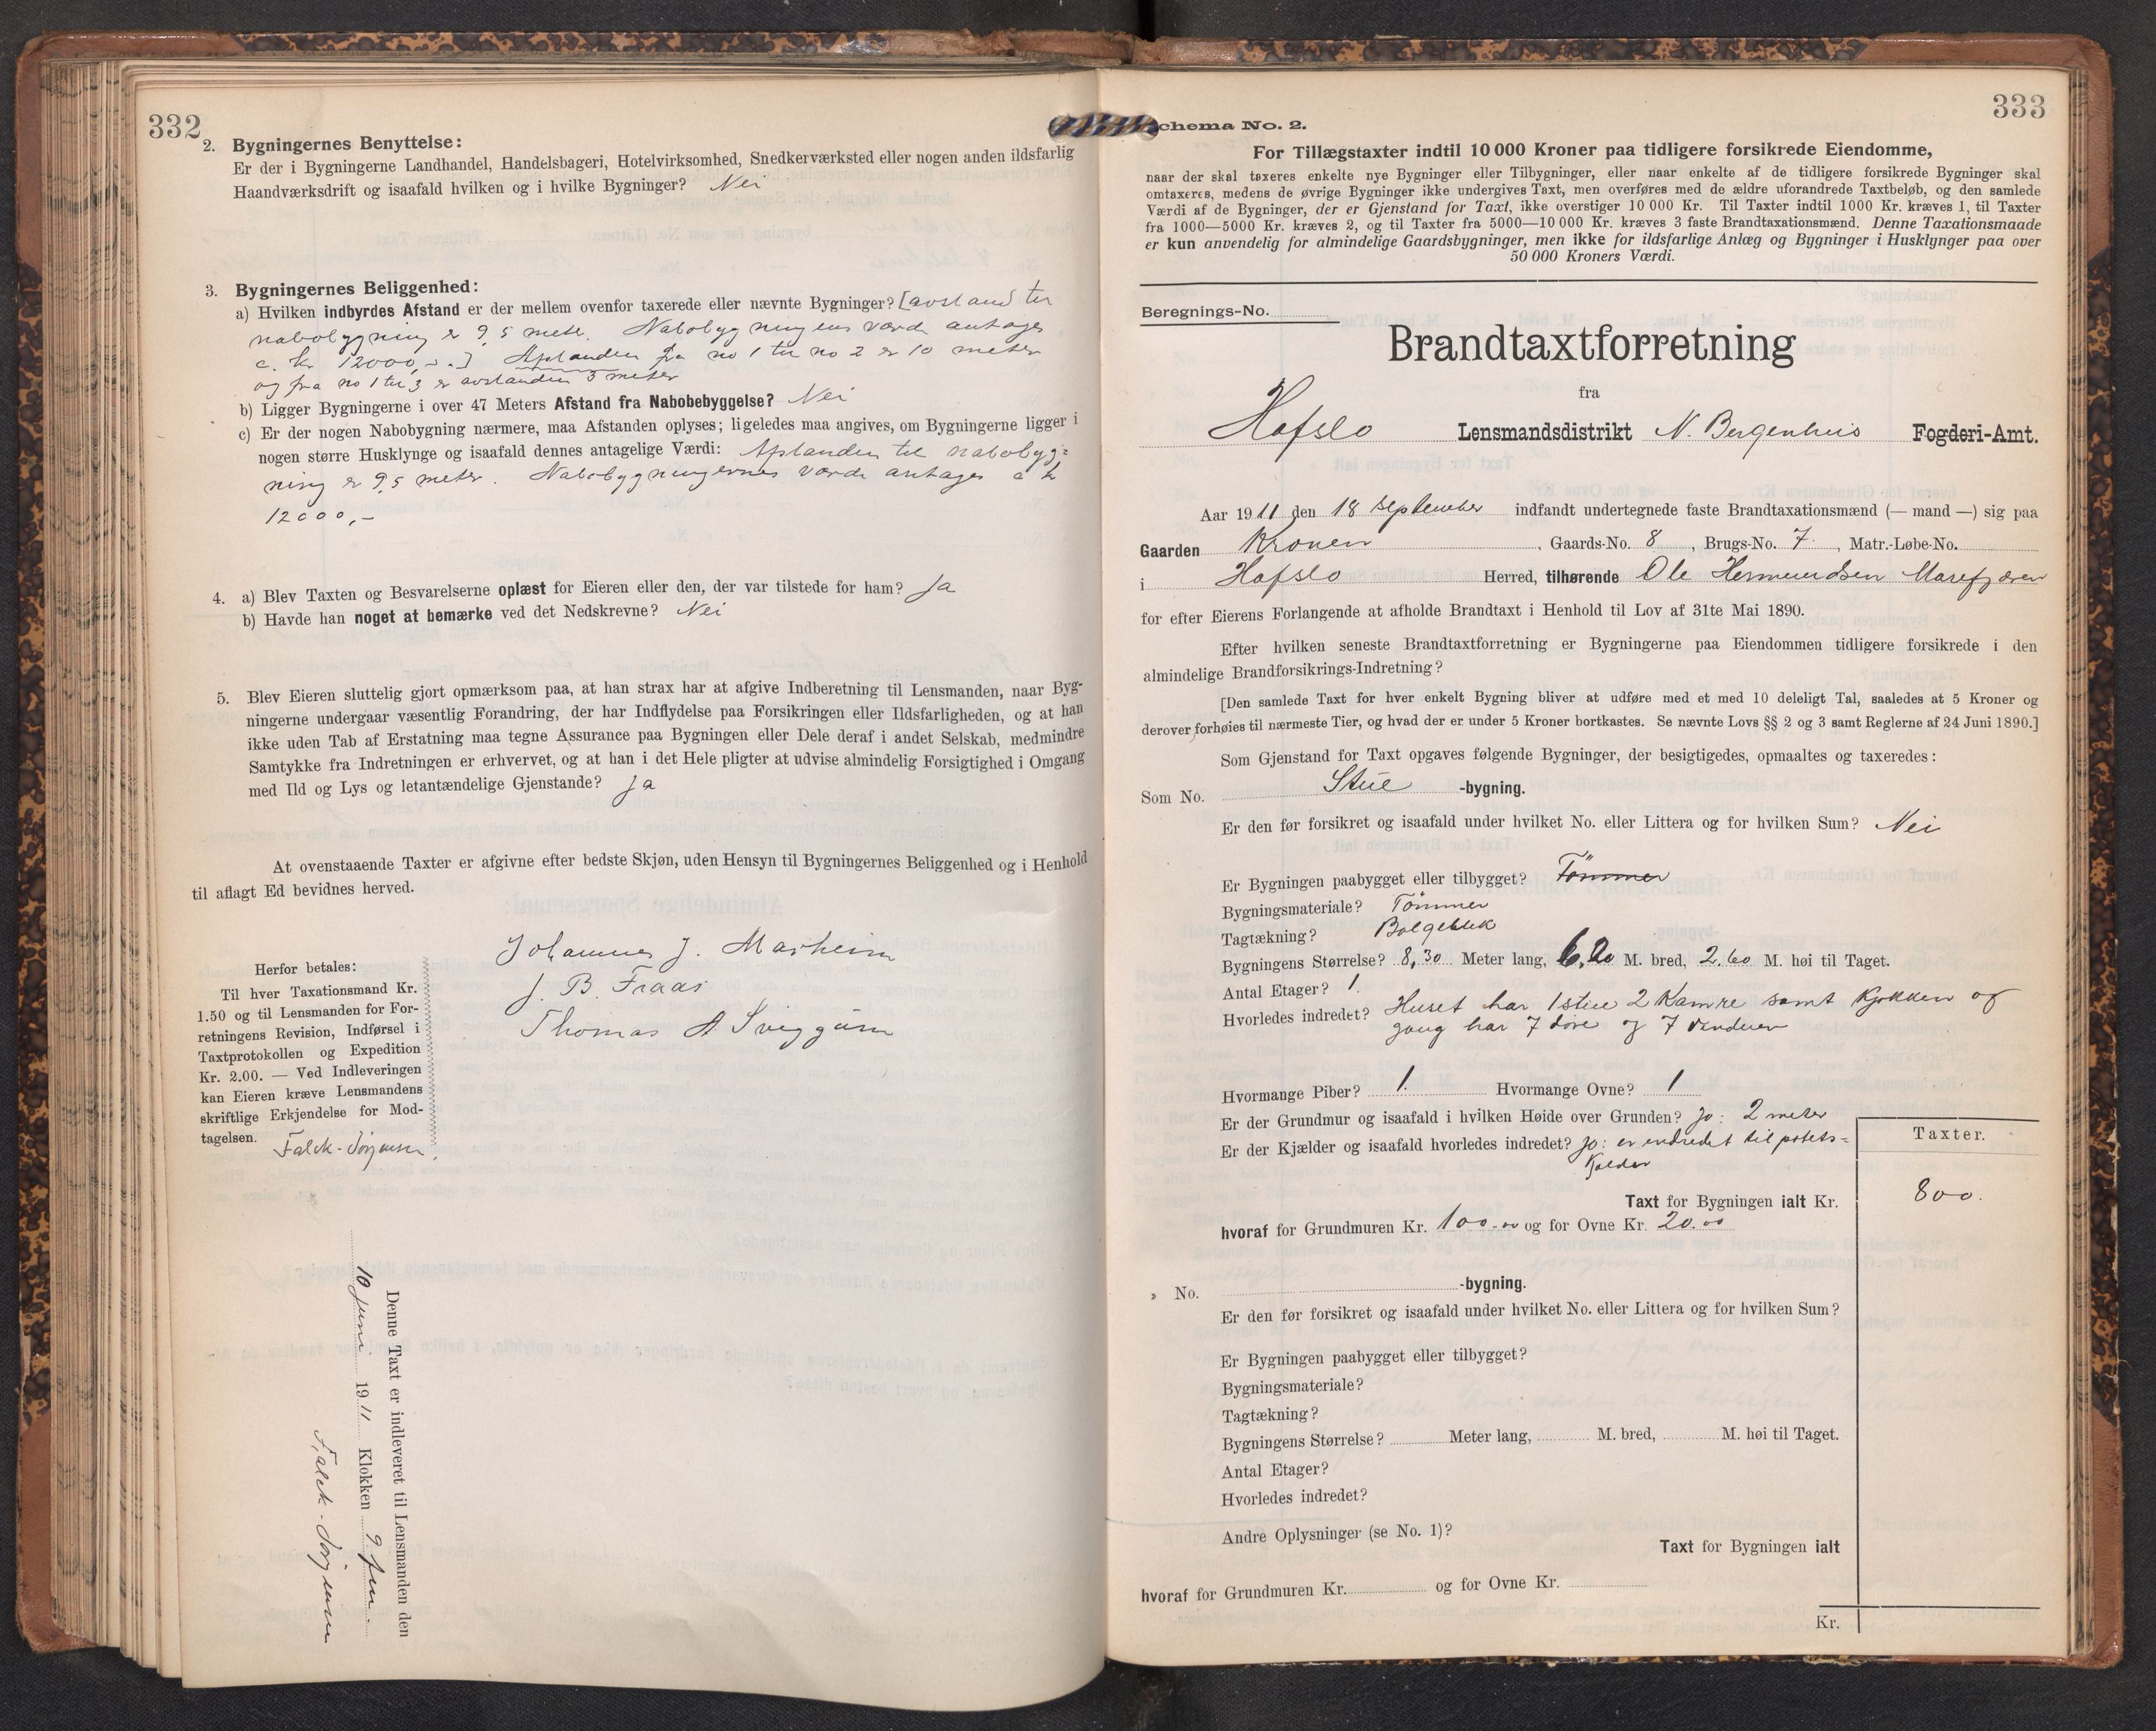 332
2. Bygningernes Benyttelse:
Er der i Bygningerne Landhandel, Handelsbageri, Hotelvirksomhed, Snedkerværksted eller nogen anden ildsfarlig
Haandværksdrift og isaafald hvilken og i hvilke Bygninger? Nei
3. Bygningernes Beliggenhed:
a) Hvilken indbyrdes Afstand er der mellem ovenfor taxerede eller nævnte Bygninger? [avstand til
nabobygning er 9,5 meter. Nabobygningens værdi antages
c. kr 12000,-.] Afstanden fra no 1 til no 2 er 10 meter
og fra no 1 til 3 er avstanden 3 meter
b) Ligger Bygningerne i over 47 Meters Afstand fra Nabobebyggelse? Nei
c) Er der nogen Nabobygning nærmere, maa Afstanden oplyses; ligeledes maa angives, om Bygningerne ligger i
nogen større Husklynge og isaafald dennes antagelige Værdi: Afstanden til nabobyg=
ning er 9,5 meter. Nabobygningernes værdi antages c kr
12000,-
4. a) Blev Taxten og Besvarelserne oplæst for Eieren eller den, der var tilstede for ham? Ja
b) Havde han noget at bemærke ved det Nedskrevne? Nei
5. Blev Eieren sluttelig gjort opmærksom paa, at han strax har at afgive Indberetning til Lensmanden, naar Byg-
ningerne undergaar væsentlig Forandring, der har Indflydelse paa Forsikringen eller Ildsfarligheden, og at han
ikke uden Tab af Erstatning maa tegne Assurance paa Bygningen eller Dele deraf i andet Selskab, medmindre
Samtykke fra Indretningen er erhvervet, og at han i det Hele pligter at udvise almindelig Forsigtighed i Omgang
med Ild og Lys og letantændelige Gjenstande? Ja
At ovenstaaende Taxter er afgivne efter bedste Skjøn, uden Hensyn til Bygningernes Beliggenhed og i Henhold
til aflagt Ed bevidnes herved.
Johannes J. Marheim
J. B. Fraas
Thomas A Sviggum
Herfor betales:
Til hver Taxationsmand Kr.
1.50 og til Lensmanden for For-
retningens Revision, Indførsel i
Taxtprotokollen og Expedition
Kr. 2.00. — Ved Indleveringen
kan Eieren kræve Lensmandens
skriftlige Erkjendelse for Mod-
tagelsen. Falck-Jørgensen.
Denne Taxt er indleveret til Lensmanden den
10 Juni 1911 Klokken 9 fm.
Falck-Jørgensen
333
chema No. 2.
For Tillægstaxter indtil 10 000 Kroner paa tidligere forsikrede Eiendomme,
naar der skal taxeres enkelte nye Bygninger eller Tilbygninger, eller naar enkelte af de tidligere forsikrede Bygninger skal
omtaxeres, medens de øvrige Bygninger ikke undergives Taxt, men overføres med de ældre uforandrede Taxtbeløb, og den samlede
Værdi af de Bygninger, der er Gjenstand for Taxt, ikke overstiger 10 000 Kr. Til Taxter indtil 1000 Kr. kræves 1, til Taxter
fra 1000—5000 Kr. kræves 2, og til Taxter fra 5000—10 000 Kr. kræves 3 faste Brandtaxationsmænd. Denne Taxationsmaade
er kun anvendelig for almindelige Gaardsbygninger, men ikke for ildsfarlige Anlæg og Bygninger i Husklynger paa over
50 000 Kroners Værdi.
Beregnings-No.
Brandtaxtforretning
fra
Hafslo Lensmandsdistrikt N. Bergenhus Fogderi-Amt.
Aar 1911 den 18 september indfandt undertegnede faste Brandtaxationsmænd (— mand —) sig paa
Gaarden Kronen, Gaards-No. 8, Brugs-No. 7, Matr.-Løbe-No.
i Hafslo Herred, tilhørende Ole Hermundsen Marefjæren
for efter Eierens Forlangende at afholde Brandtaxt i Henhold til Lov af 31te Mai 1890.
Efter hvilken seneste Brandtaxtforretning er Bygningerne paa Eiendommen tidligere forsikrede i den
almindelige Brandforsikrings-Indretning?
[Den samlede Taxt for hver enkelt Bygning bliver at udføre med et med 10 deleligt Tal, saaledes at 5 Kroner og
derover forhøies til nærmeste Tier, og hvad der er under 5 Kroner bortkastes. Se nævnte Lovs §§ 2 og 3 samt Reglerne af 24 Juni 1890.]
Som Gjenstand for Taxt opgaves følgende Bygninger, der besigtigedes, opmaaltes og taxeredes:
Som No. Stue -bygning.
Er den før forsikret og isaafald under hvilket No. eller Littera og for hvilken Sum? Nei
Er Bygningen paabygget eller tilbygget? Tømmer
Bygningsmateriale? Tømmer
Tagtækning? Bølgeblik
Bygningens Størrelse? 8,30 Meter lang, 6,20 M. bred, 2.60 M. høi til Taget.
Antal Etager? 1.
Hvorledes indredet? Huset har 1 stue 2 Kamre samt Kjøkken og
gang har 7 døre og 7 vinduer
Hvormange Piber? 1. Hvormange Ovne? 1
Er der Grundmur og isaafald i hvilken Høide over Grunden? Jo: 2 meter
Er der Kjælder og isaafald hvorledes indredet? Jo: er indredet til potets=
Kjelder
Taxter.
Taxt for Bygningen ialt Kr. 800.
hvoraf for Grundmuren Kr. 100.00 og for Ovne Kr. 20.00
„ No. -bygning.
Er den før forsikret og isaafald under hvilket No. eller Littera og for hvilken Sum?
Er Bygningen paabygget eller tilbygget?
Bygningsmateriale?
Tagtækning?
Bygningens Størrelse? Meter lang, M. bred, M. høi til Taget.
Antal Etager?
Hvorledes indredet?
Andre Oplysninger (se No. 1)?
Taxt for Bygningen ialt
hvoraf for Grundmuren Kr. og for Ovne Kr.
Kr.